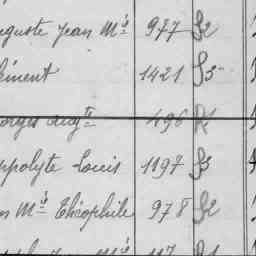 uguste Jean Mis 977 S2
lément 1421 S5
orges Augte 496
ppolyte Louis 1197 S3
Mis Théophile 978 S2